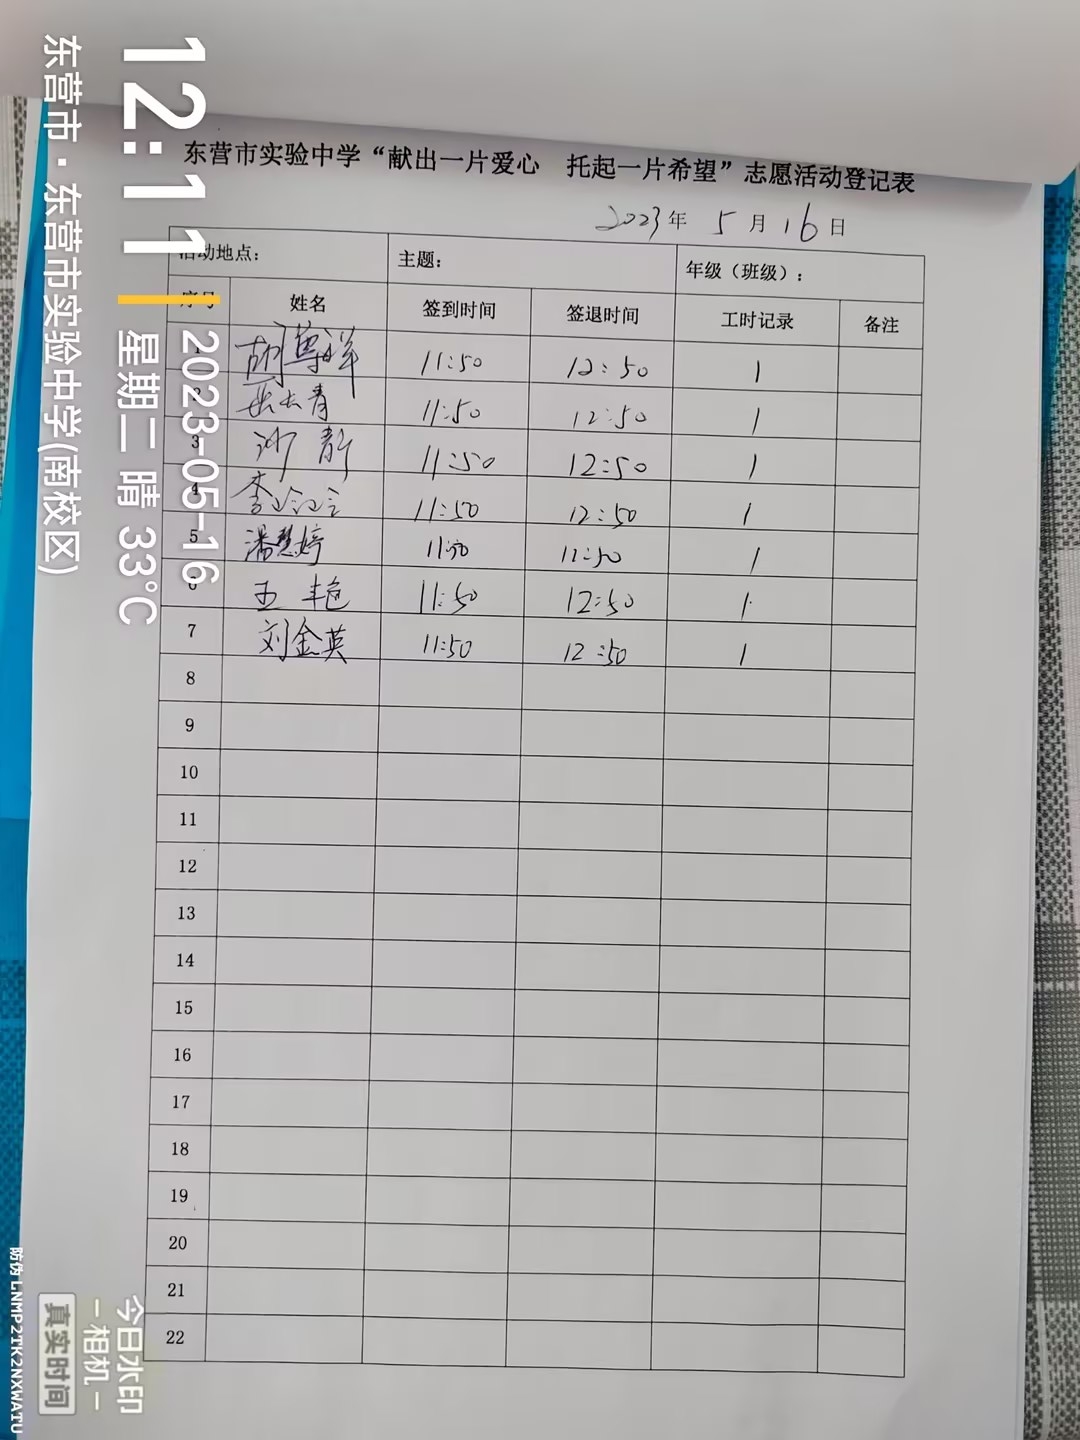 东营市实验中学“献出一片爱心 托起一片希望”志愿活动登记表
2023年 5月16日
活动地点： 主题： 年级（班级）：
序号 姓名 签到时间 签退时间 工时记录 备注
1 胡尊祥 11:50 12:50 1
2 长青 11:50 12:50 1
3 沙静 11:50 12:50 1
4 李 11:50 12:50 1
5 潘慧婷 11:50 1
6 王艳 11:50 12:50 1
7 刘金英 11:50 12:50 1
8
9
10
11
12
13
14
15
16
17
18
19
20
21
22
12:11
2023-05-16
星期二 晴 33°C
东营市·东营市实验中学(南校区)
今日水印
-相机-
真实时间
防伪 LNMP2TK2NXWATU